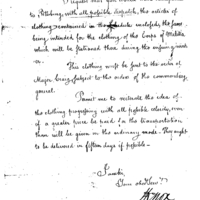 I request that you would
to Pittsburg, with all possible dispatch, the articles of
clothing contained in the schedule enclosed, the same
being intended for the clothing of the Corps of Militia
which will be stationed there during the ensuing wint
er.
This clothing must be sent to the order of
Major Craig, subject to the order of the commanding
general.
Permit me to reiterate the idea of
the clothing progressing with all possible celerity, even
if a greater price be paid for the transportation
than will be given in the ordinary mode. They ought
to be delivered in fifteen days if possible.
I am Sir
Your obed Serv
H Knox